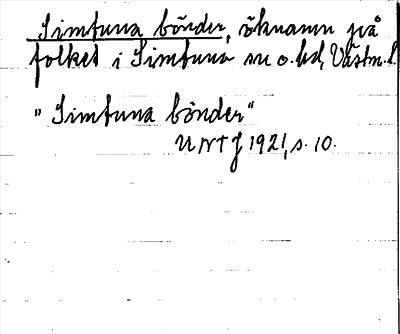 Simtuna bönder, öknamn på
folket i Simtuna sn o. hd, Västm. l.
"Simtuna bönder"
UNTJ 1921, s. 10.